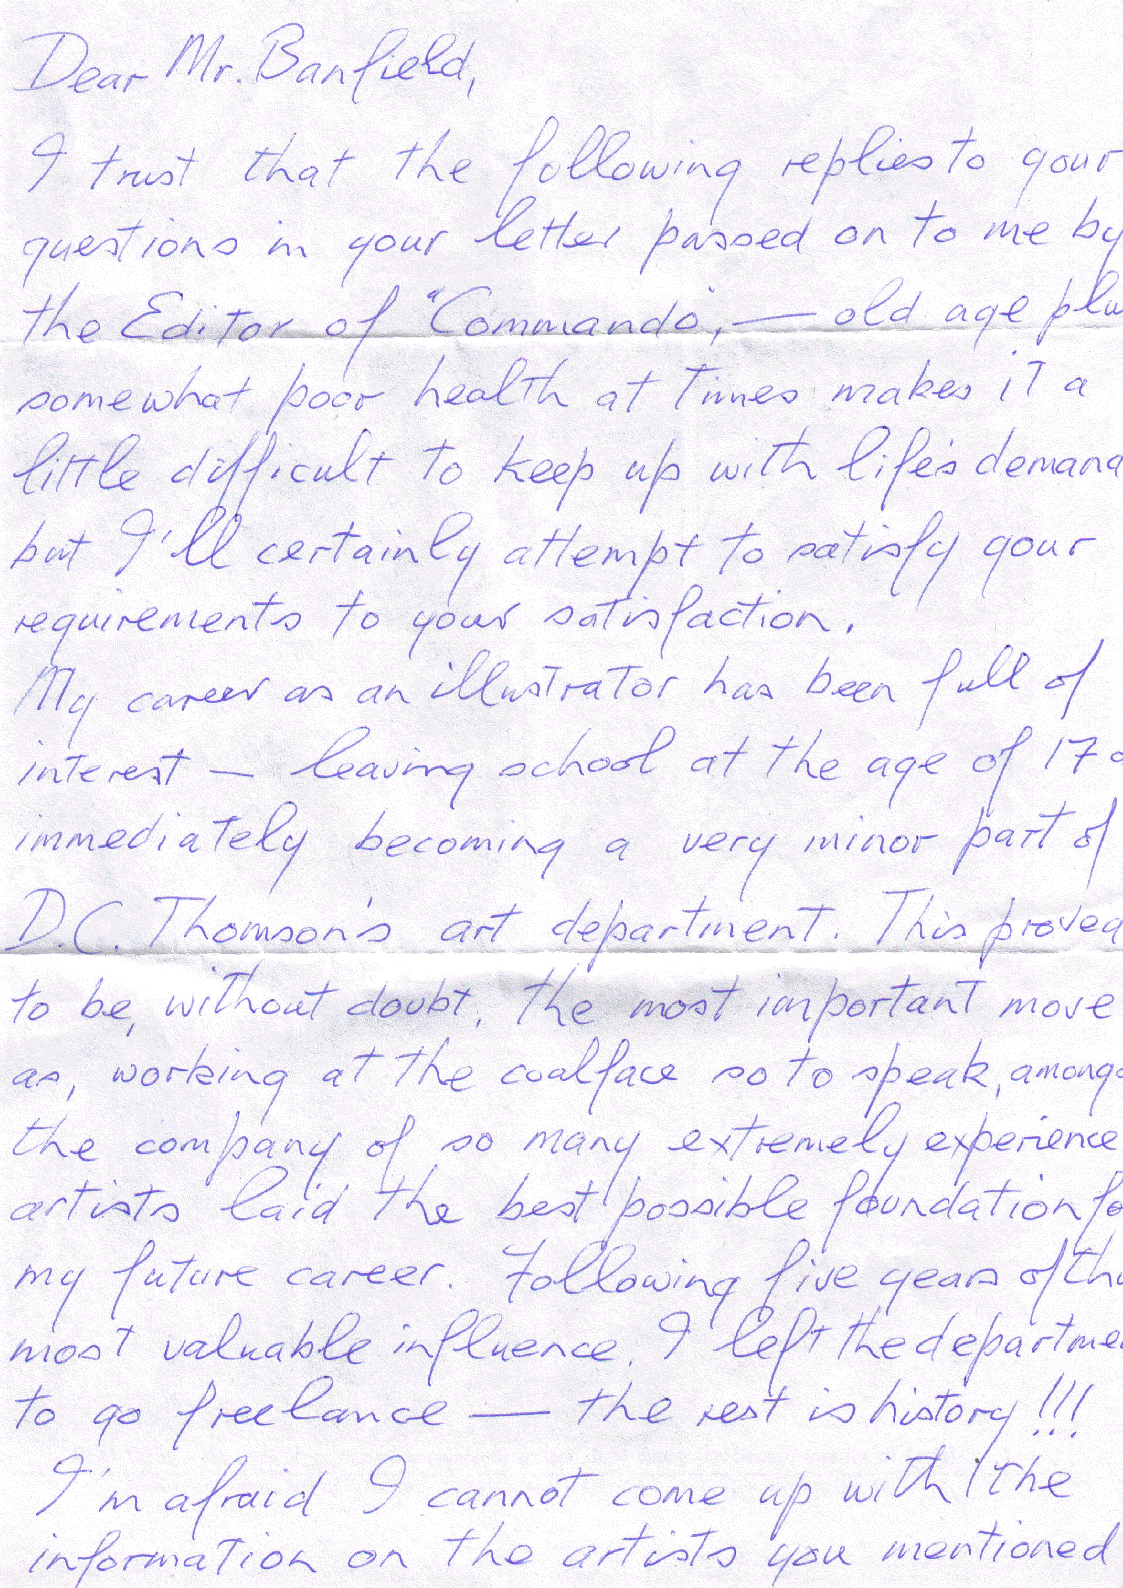 Dear Mr. Banfield,
I trust that the following replies to your
questions in your letter passed on to me by
the Editor of "Commando", — old age plu
somewhat poor health at times makes it a
little difficult to keep up with life's demand
but I'll certainly attempt to satisfy your
requirements to your satisfaction.
My career as an illustrator has been full of
interest — leaving school at the age of 17
immediately becoming a very minor part of
D.C. Thomson's art department. This proved
to be, without doubt, the most important move
as, working at the coalface so to speak, amongs
the company of so many extremely experience
artists laid the best possible foundation fo
my future career. Following five years of th
most valuable influence, I left the departme
to go freelance — the rest is history!!!
I'm afraid I cannot come up with the
information on the artists you mentioned